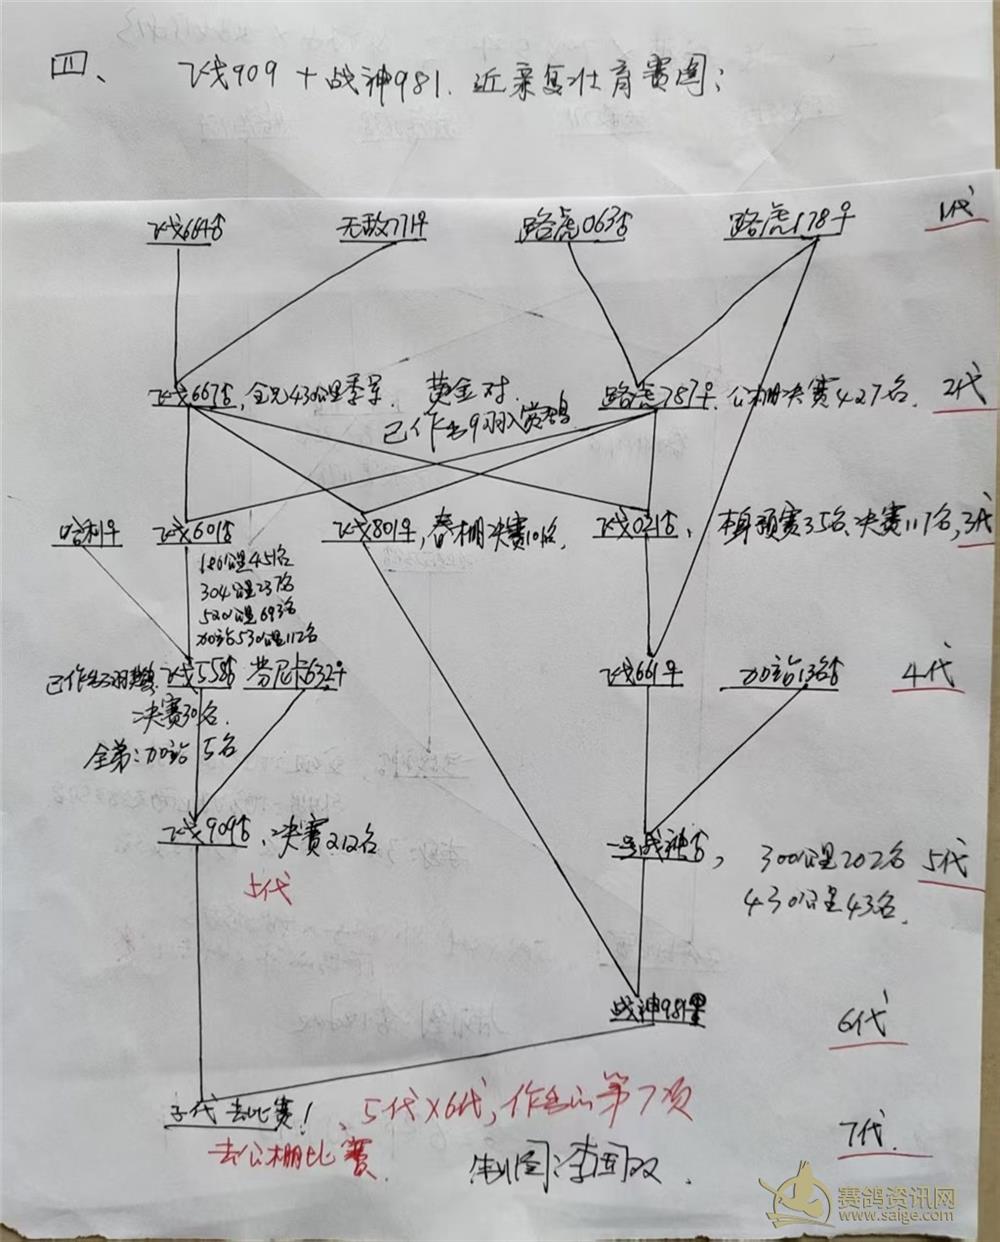 四、 飞戊909+战神981.近亲复壮育赛图:
飞戊664♂ 无敌771♀ 路虎063♂ 路虎178♀ 1代
飞戊667♂,全兄430公里季军 黄金对. 路虎787♀.公棚决赛427名. 2代
已作出9羽入赏鸽
哈利♀ 飞戊601♂ 飞戊801♀,春棚决赛101名. 飞戊021♂、本身预赛35名、决赛117名, 3代
186公里451名
304公里237名
520公里693名
加站530公里112名
飞戊558♂ 芬尼卡632♀ 飞戊661♀ 加站13名♂ 4代
决赛30名.
全弟:加站5名
飞戊909♂、决赛212名 一号战神♂, 300公里202名 5代
5代 430公里43名.
战神981 6代
子代去比赛!、5代×6代,作出的第7项 7代.
去公棚比赛. 制图:李国双.
赛鸽资讯网
www.saige.com